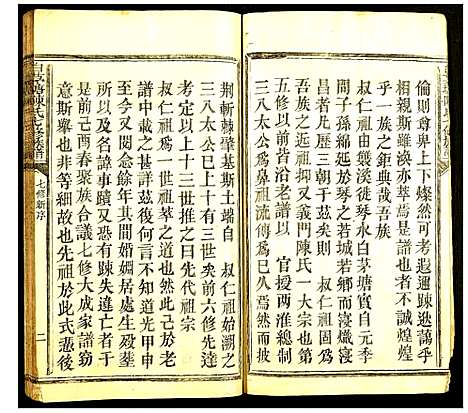 倫則尊卑上下燦然可考遐邇踈逖藹乎
相親斯雖渙亦萃焉是譜者不誠煌煌
乎一族之鉅典哉吾族
叔仁祖由襲溪徙琴水白茅塘實自元季
間子孫綿延於琴之若城若鄉而寖熾寖
昌者凡歷三朝于玆矣則 叔仁祖固爲
三八不祧之祖而玆又義門陳氏一大宗也
五修以前吾沿老譜以 官授兩淮總制
三八太公爲鼻祖流傳爲已久然而披
荆斬棘肇基斯土端自 叔仁祖始溯之
三八太公已上十有三世矣前六修先達
考定以上十三世推之曰先代祖宗
叔仁祖爲一世祖莘之道也然此己於老
譜中載之甚詳玆後何言不知道光甲申
至今又閱念餘年其間婚姻居處生歿塋
墓以及名諱事蹟又恐有踈失違亡者于
是前己酉春聚族合議七修大成家譜
意斯舉也非等細故也先祖於此式悲後
七修新序
二